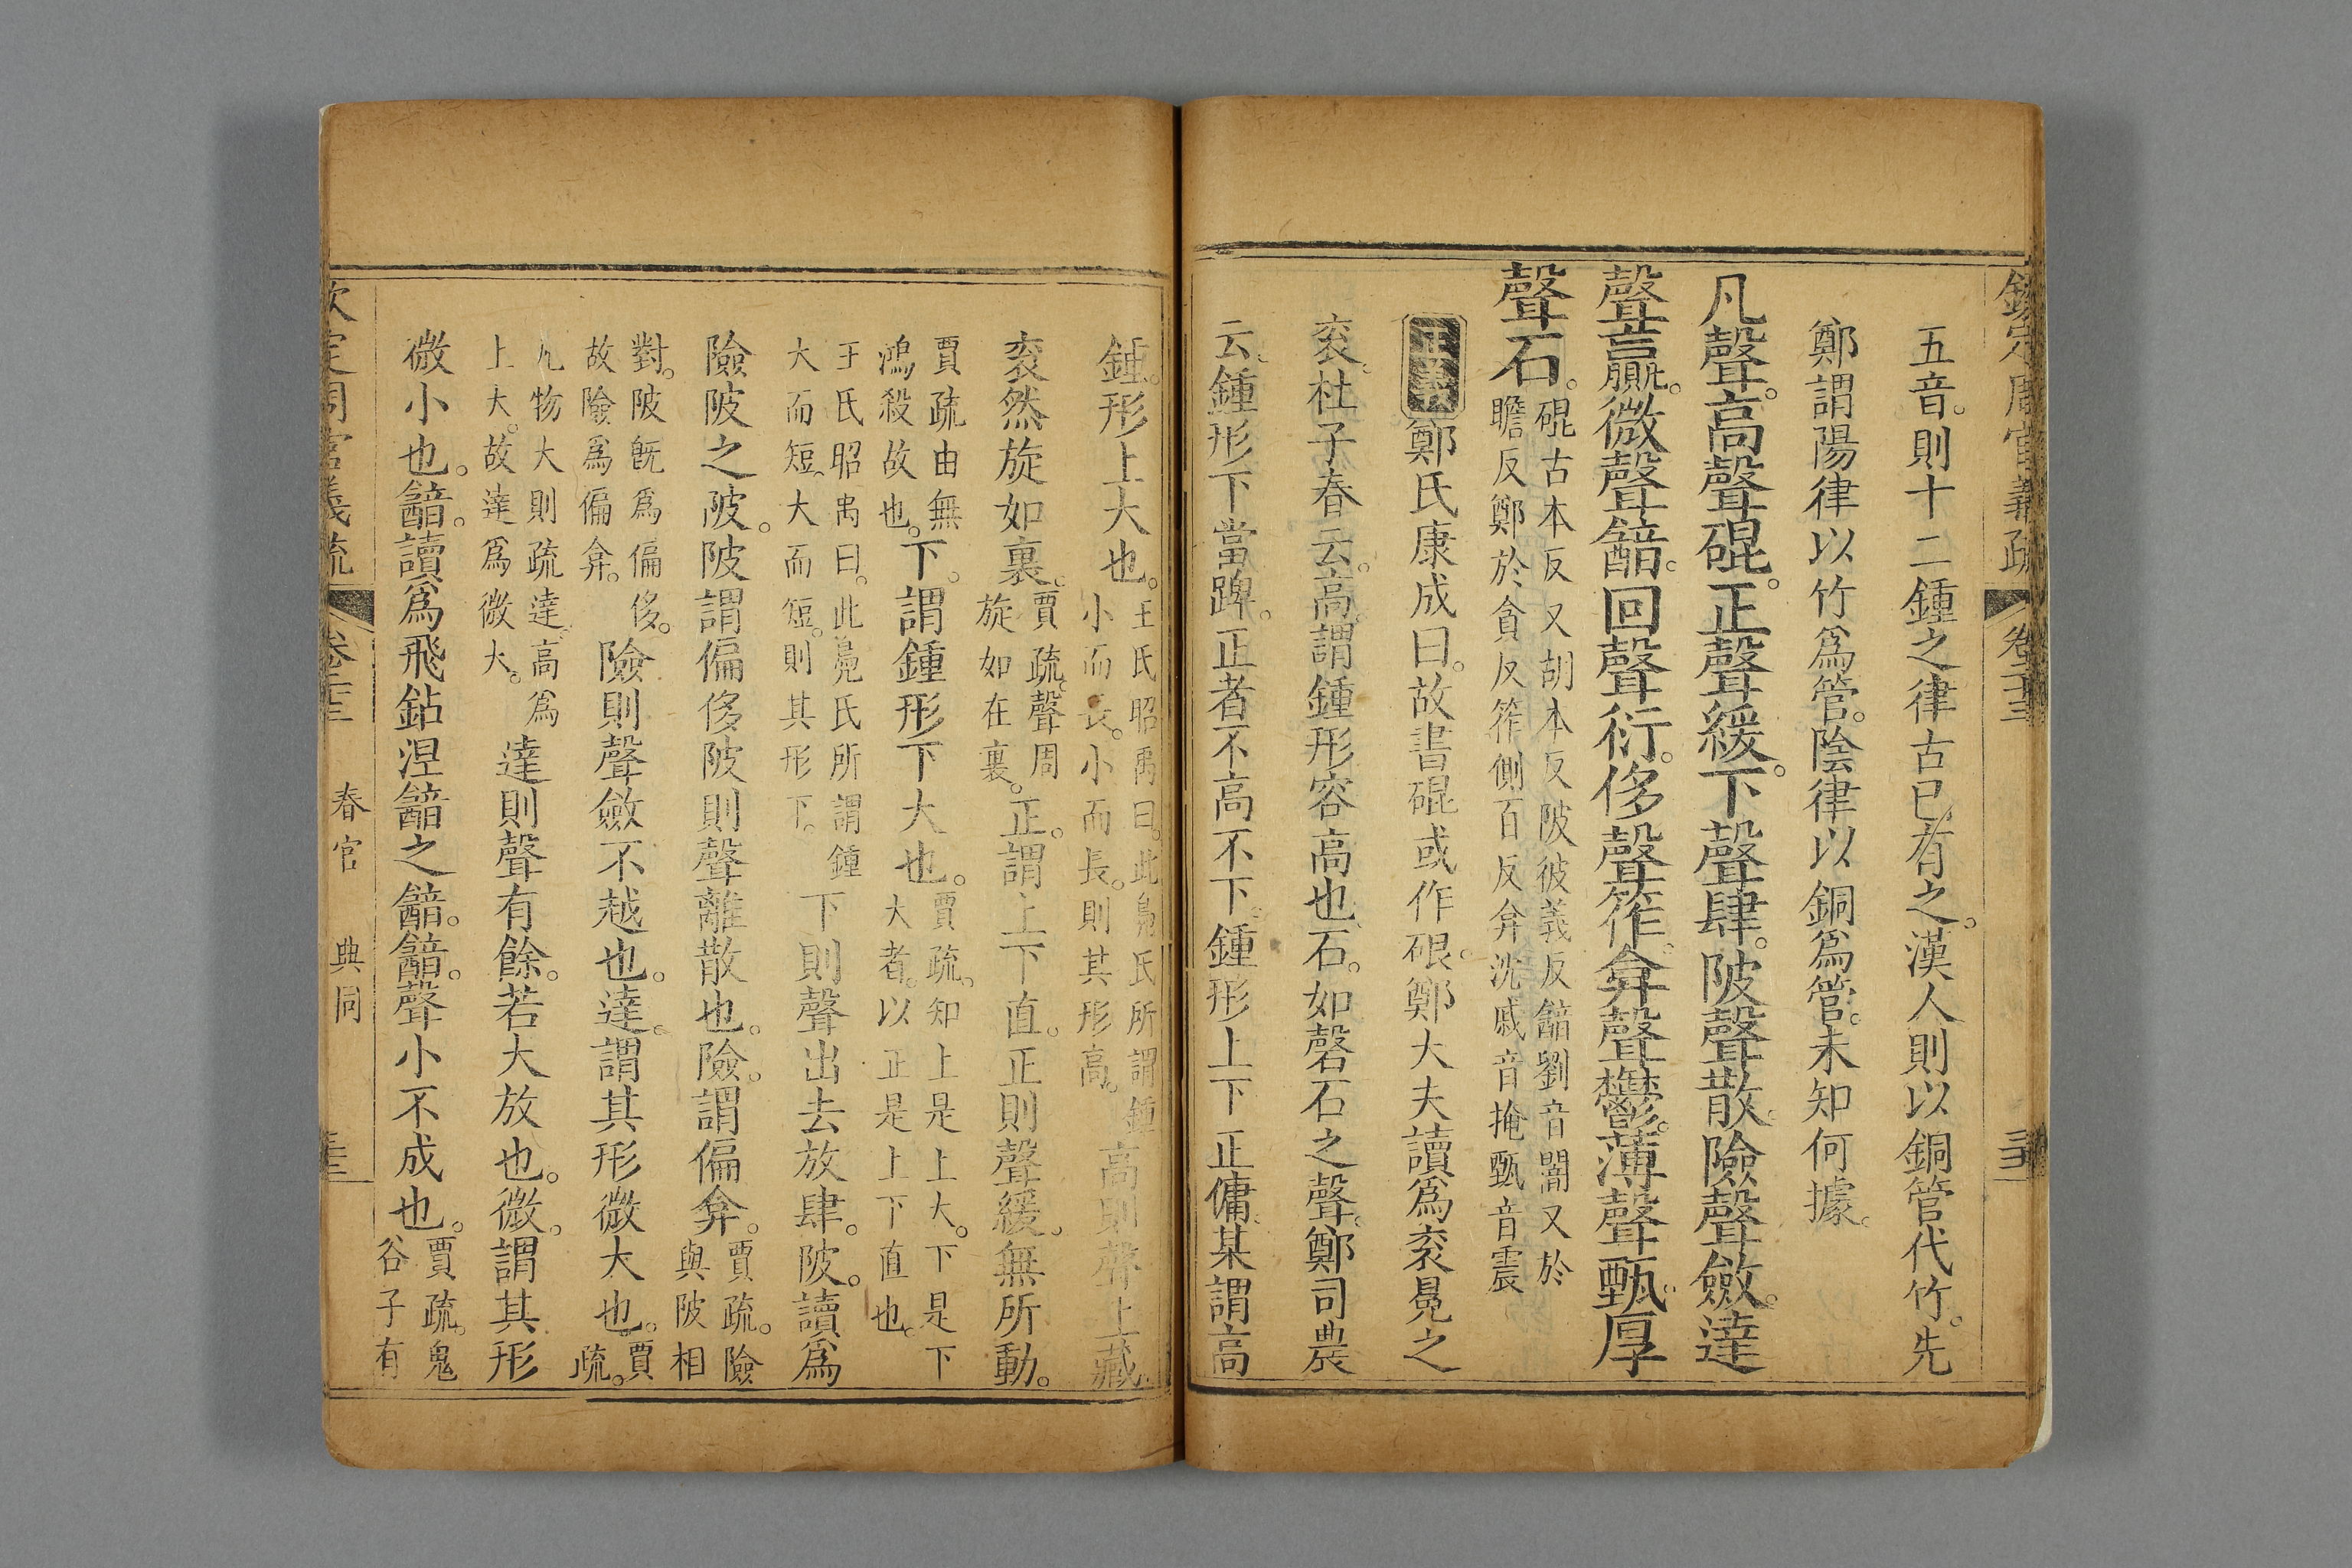 五音。則十二鍾之律古已有之。漢人則以銅管代竹。先
鄭謂陽律以竹爲管。陰律以銅爲管。未知何據。
凡聲。高聲䃂。正聲緩。下聲肆。陂聲散。險聲斂。達
聲贏。微聲韽。回聲衍。侈聲筰。弇聲鬱。薄聲甄。厚
聲石。
䃂古本反又胡本反陂彼義反韽劉音闇又於
瞻反鄭於貪反筰側百反弇沈戚音掩甄音震
正義鄭氏康成曰。故書䃂或作硍。鄭大夫讀爲衮冕之
衮。杜子春云。高謂鍾形容高也。石。如磬石之聲。鄭司農
云。鍾形下當踔。正者不高不下。鍾形上下正傭。某謂高
鍾。形上大也。
王氏昭禹曰。此鳧氏所謂鍾
小而長。小而長。則其形高。
高則聲上藏
衮然旋如裏。
賈疏。聲周
旋如在裏。
正。謂上下直。正則聲緩。無所動。
賈疏由無
鴻殺故也。
下。謂鍾形下大也。
賈疏。知上是上大。下是下
大者。以正是上下直也。
王氏昭禹曰。此鳧氏所謂鍾
大而短。大而短。則其形下。
下則聲出去放肆。陂。讀爲
險陂之陂。陂謂偏侈陂則聲離散也。險。謂偏弇。
賈疏。險
與陂相
對。陂旣爲偏侈。
故險爲偏弇。
險則聲斂不越也。達。謂其形微大也。
賈
疏。
凡物大則疏達。高爲
上大。故達爲微大。
達則聲有餘。若大放也。微。謂其形
微小也。韽。讀爲飛鉆涅韽之韽。韽。聲小不成也。
賈疏。鬼
谷子有
欽定周官義疏
卷二十三
春官
典同